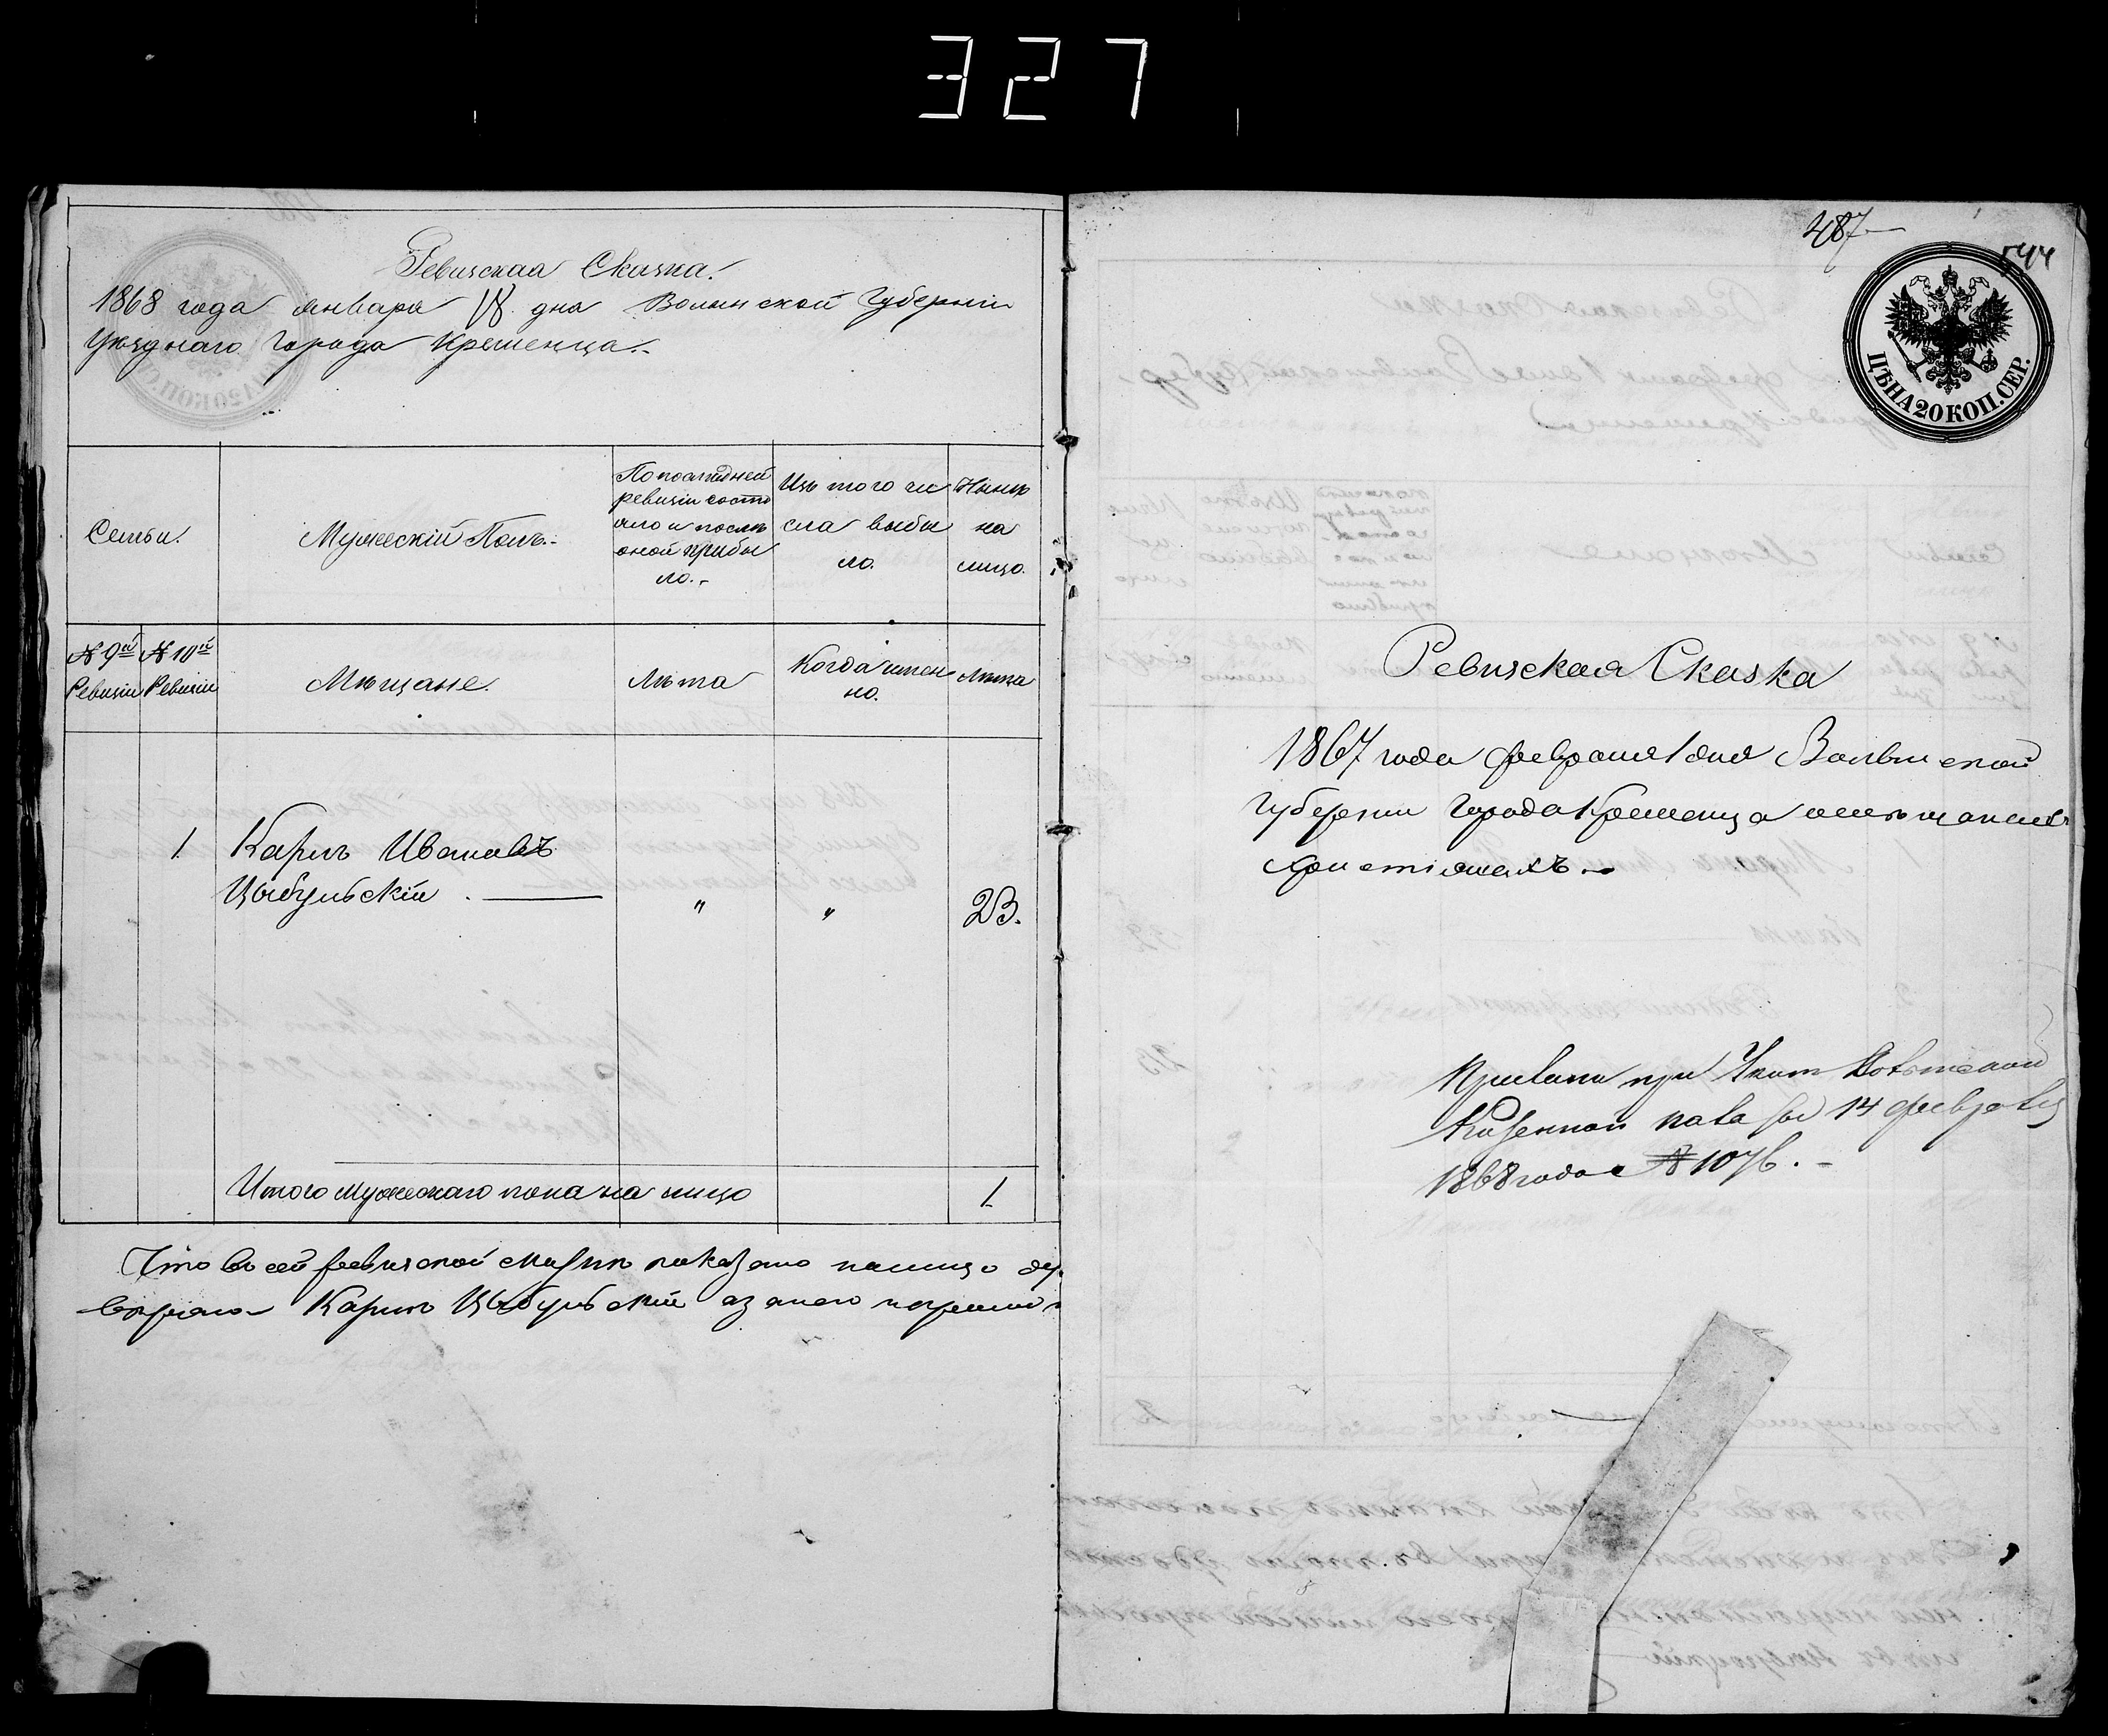 327
Ревизская Сказка.
1868 года января 18 дня Волынской Губерніи
Уѣзднаго Города Кременца.-
Семьи.
Мужескій Полъ.-
По последней
ревизіи состо
яло и послѣ
оной прибы
ло.-
Изъ того чи
сла выбы
ло.
Нынѣ
на
лицо.
№ 9й
Ревизіи
№ 10й
Ревизіи
Мѣщане.
Лѣта
Когда имен
но.
Лѣта
1.
Карпъ Ивановъ
Цыбульскій . —
"
"
23.
Итого мужескаго пола на лицо
1
Что во сей ревизской сказке показано налицо
Карпъ Цыбульскій
487
544
ЦѢНА 20 КОП. СЕР.
Ревизская Сказка
1867 года февраля 1 дня Волынской
Губерніи Города Кременца о мѣщанахъ
христіянахъ.-
при
Казенной 14 февраля
1868 года № 1076.-